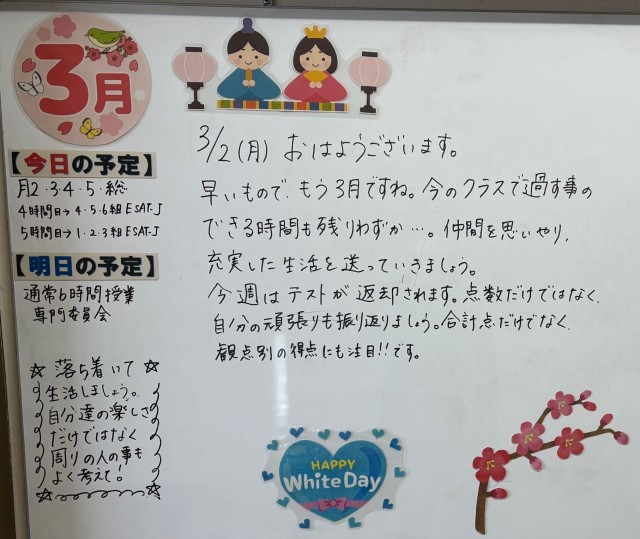 3月
【今日の予定】
月2・3・4・5・総
4時間目→4・5・6組ESAT-J
5時間目→1・2・3組ESAT-J
【明日の予定】
通常6時間授業
専門委員会
☆落ち着いて☆
生活しましょう。
自分達の楽しさ
だけではなく
周りの人の事も
よく考えて!
3/2(月) おはようございます。
早いもので、もう3月ですね。今のクラスで過す事の
できる時間も残りわずか…。仲間を思いやり、
充実した生活を送っていきましょう。
今週はテストが返却されます。点数だけではなく、
自分の頑張りも振り返りましょう。合計点だけでなく、
観点別の得点にも注目!!です。
HAPPY
White Day